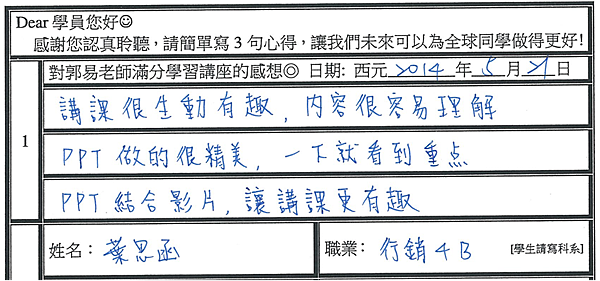 Dear 學員您好☺
感謝您認真聆聽，請簡單寫 3 句心得，讓我們未來可以為全球同學做得更好!
1
對郭易老師滿分學習講座的感想◎ 日期: 西元 2014 年 5 月 21 日
講課很生動有趣，內容很容易理解
PPT 做的很精美，一下就看到重点
PPT 結合影片，讓講課更有趣
姓名： 葉思函 職業： 行銷4B [學生請寫科系]